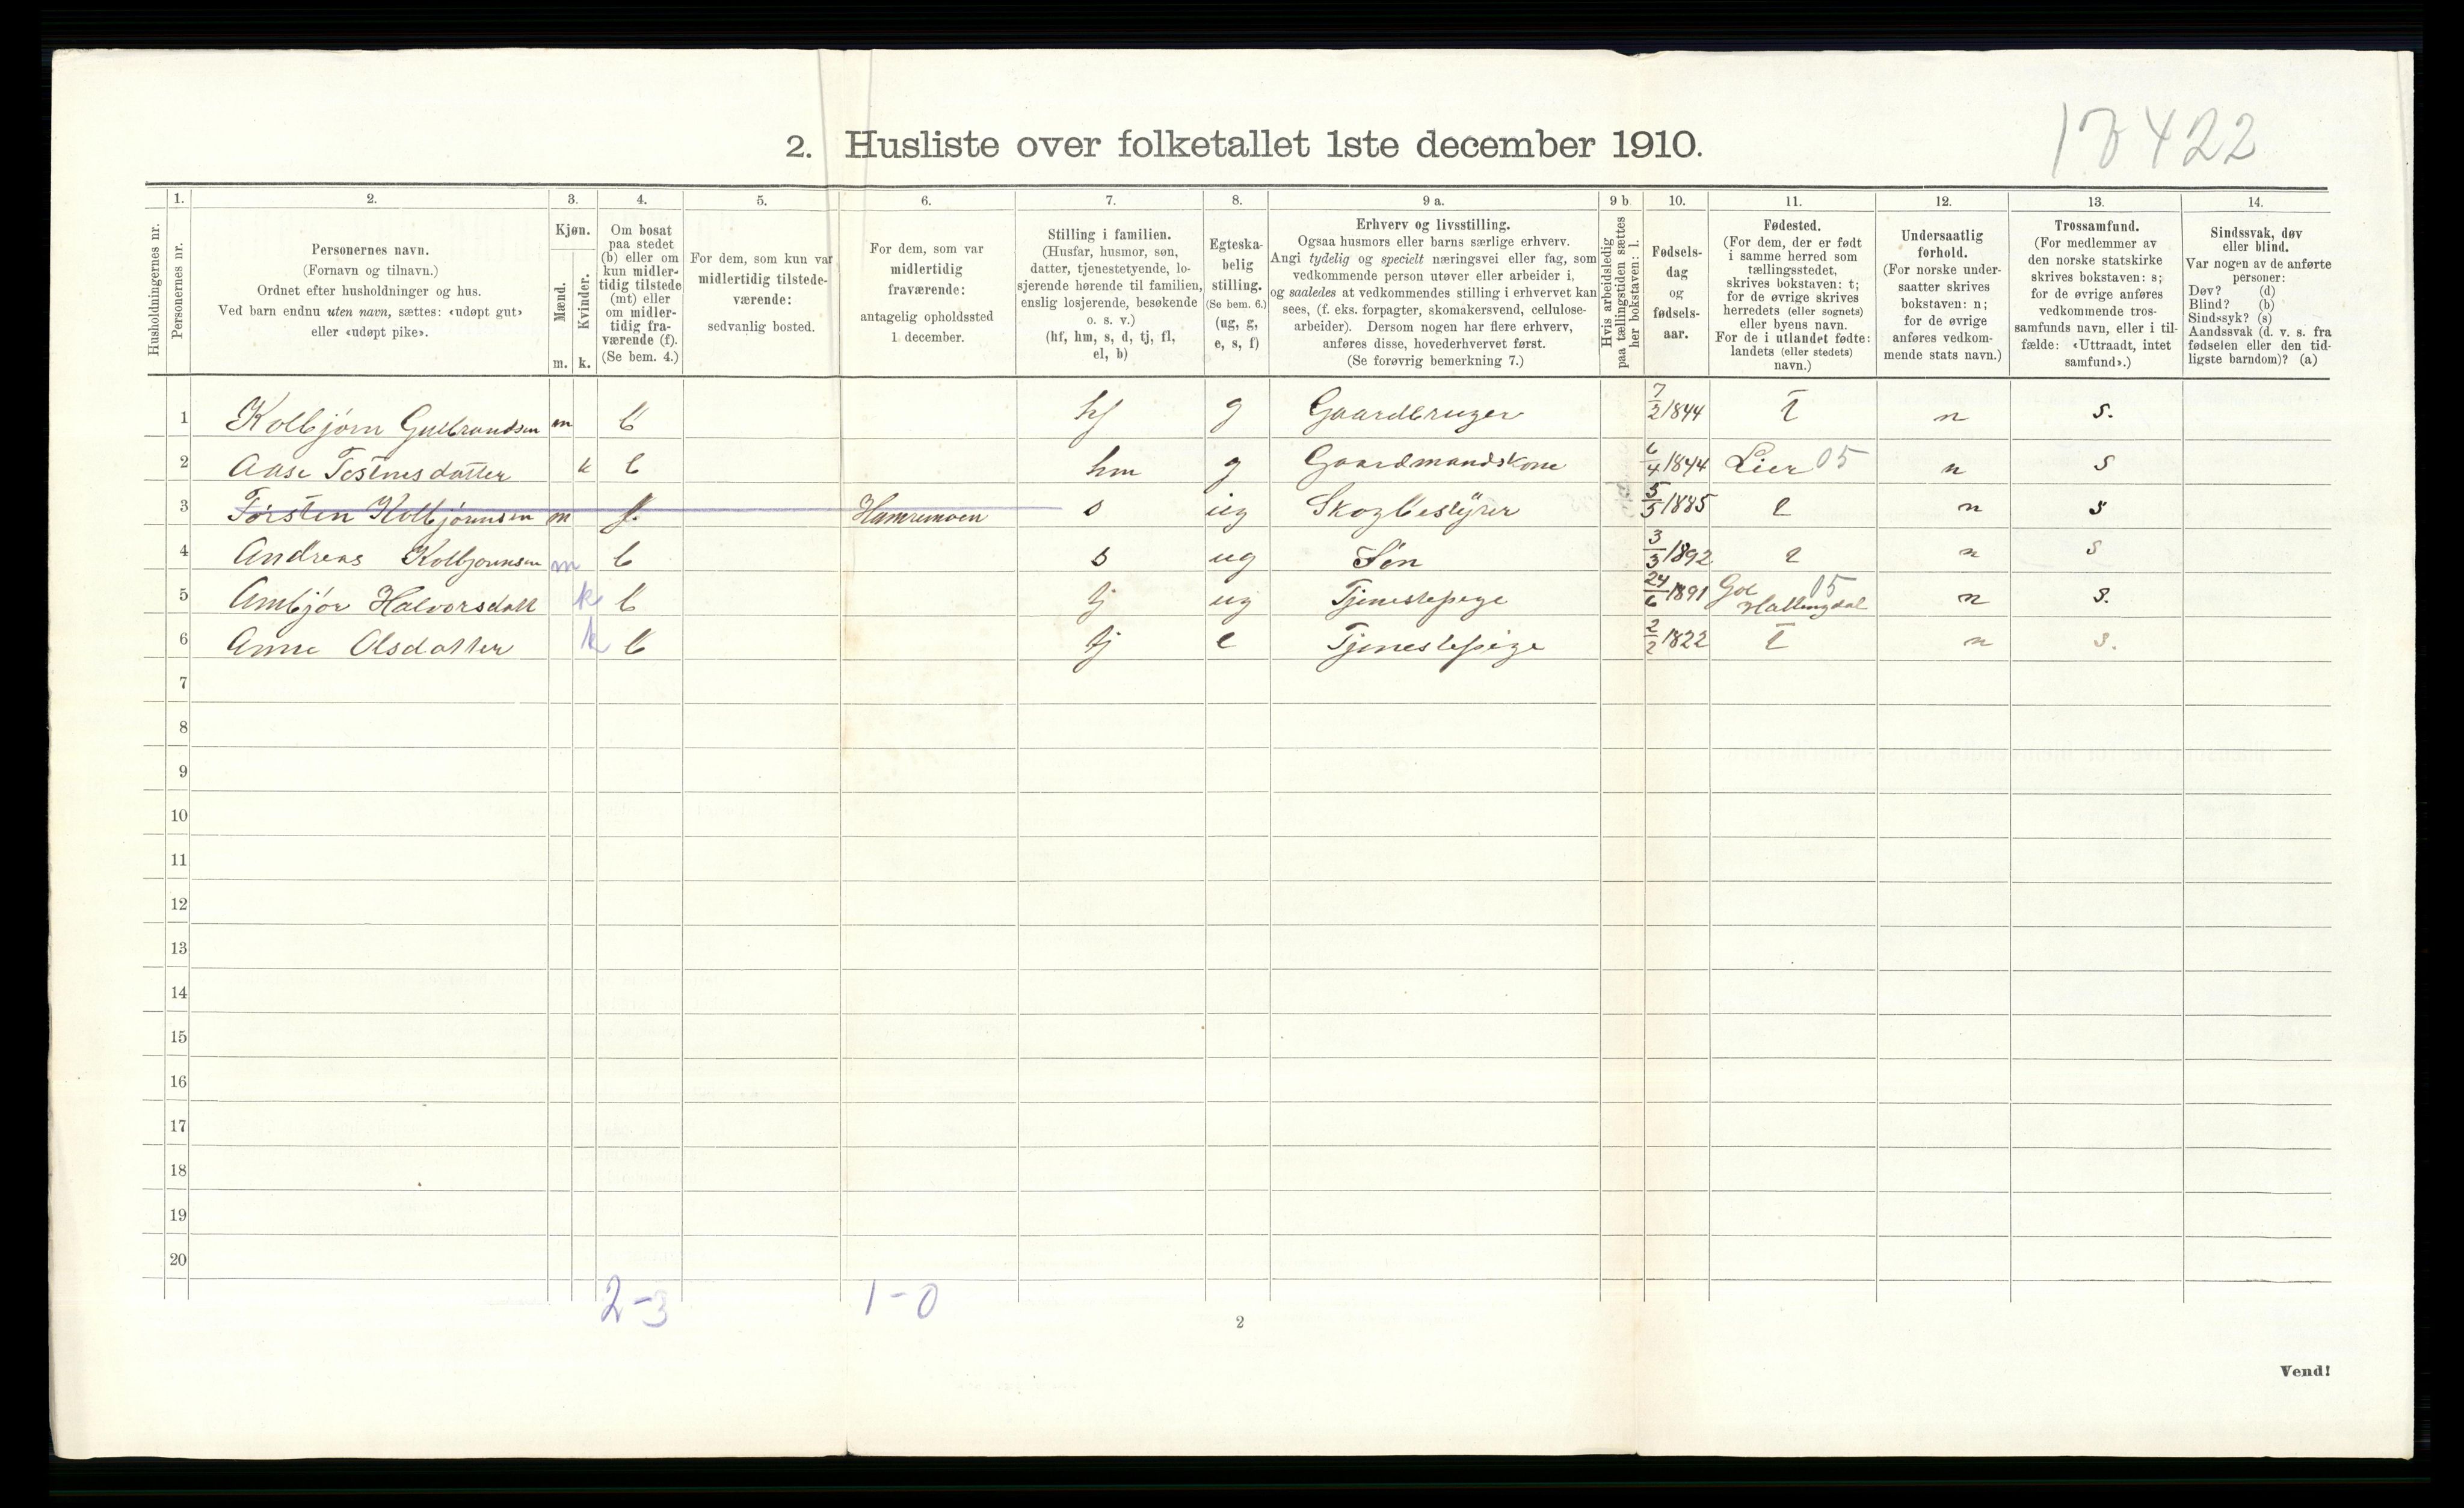 17422
2. Husliste over folketallet 1ste december 1910.
1. 2. 3. 4. 5. 6. 7. 8. 9 a. 9 b. 10. 11. 12. 13. 14.
Husholdningernes nr.
Personernes nr.
Personernes navn.
(Fornavn og tilnavn.)
Ordnet efter husholdninger og hus.
Ved barn endnu uten navn, sættes: «udøpt gut»
eller «udøpt pike».
Kjøn.
Mænd.
Kvinder.
m. k.
Om bosat
paa stedet
(b) eller om
kun midler-
tidig tilstede
(mt) eller
om midler-
tidig fra-
værende (f).
(Se bem. 4.)
For dem, som kun var
midlertidig tilstede-
værende:
sedvanlig bosted.
For dem, som var
midlertidig
fraværende:
antagelig opholdssted
1 december.
Stilling i familien.
(Husfar, husmor, søn,
datter, tjenestetyende, lo-
sjerende hørende til familien,
enslig losjerende, besøkende
o. s. v.)
(hf, hm, s, d, tj, fl,
el, b)
Egteska-
belig
stilling.
(Se bem. 6.)
(ug, g,
e, s, f)
Erhverv og livsstilling.
Ogsaa husmors eller barns særlige erhverv.
Angi tydelig og specielt næringsvei eller fag, som
vedkommende person utøver eller arbeider i,
og saaledes at vedkommendes stilling i erhvervet kan
sees, (f. eks. forpagter, skomakersvend, cellulose-
arbeider). Dersom nogen har flere erhverv,
anføres disse, hovederhvervet først.
(Se forøvrig bemerkning 7.)
Hvis arbeidsledig
paa tællingstiden sættes
her bokstaven: l.
Fødsels-
dag
og
fødsels-
aar.
Fødested.
(For dem, der er født
i samme herred som
tællingsstedet,
skrives bokstaven: t;
for de øvrige skrives
herredets (eller sognets)
eller byens navn.
For de i utlandet fødte:
landets (eller stedets)
navn.)
Undersaatlig
forhold.
(For norske under-
saatter skrives
bokstaven: n;
for de øvrige
anføres vedkom-
mende stats navn.)
Trossamfund.
(For medlemmer av
den norske statskirke
skrives bokstaven: s;
for de øvrige anføres
vedkommende tros-
samfunds navn, eller i til-
fælde: «Uttraadt, intet
samfund».)
Sindssvak, døv
eller blind.
Var nogen av de anførte
personer:
Døv? (d)
Blind? (b)
Sindssyk? (s)
Aandssvak (d. v. s. fra
fødselen eller den tid-
ligste barndom)? (a)
1 Kolbjørn Gulbrandsen m b hf g Gaardbruger 7/2 1844 t n s.
2 Aase Tostensdatter k b hm g Gaardmandskone 6/4 1844 Lier 05 n s
3 Torsten Kolbjørnsen m f. Hamremoen s ug Skogbestyrer 5/5 1885 t n s
4 Andreas Kolbjørnsen m b s ug Søn 3/3 1892 t n s
5 Ambjør Halvorsdatt k b tj ug Tjenestepige 24/6 1891 Gol Hallingdal 05 n s.
6 Anne Olsdatter k b tj e Tjenestepige 2/2 1822 t n s.
7
8
9
10
11
12
13
14
15
16
17
18
19
20
2-3 1-0
2
Vend!